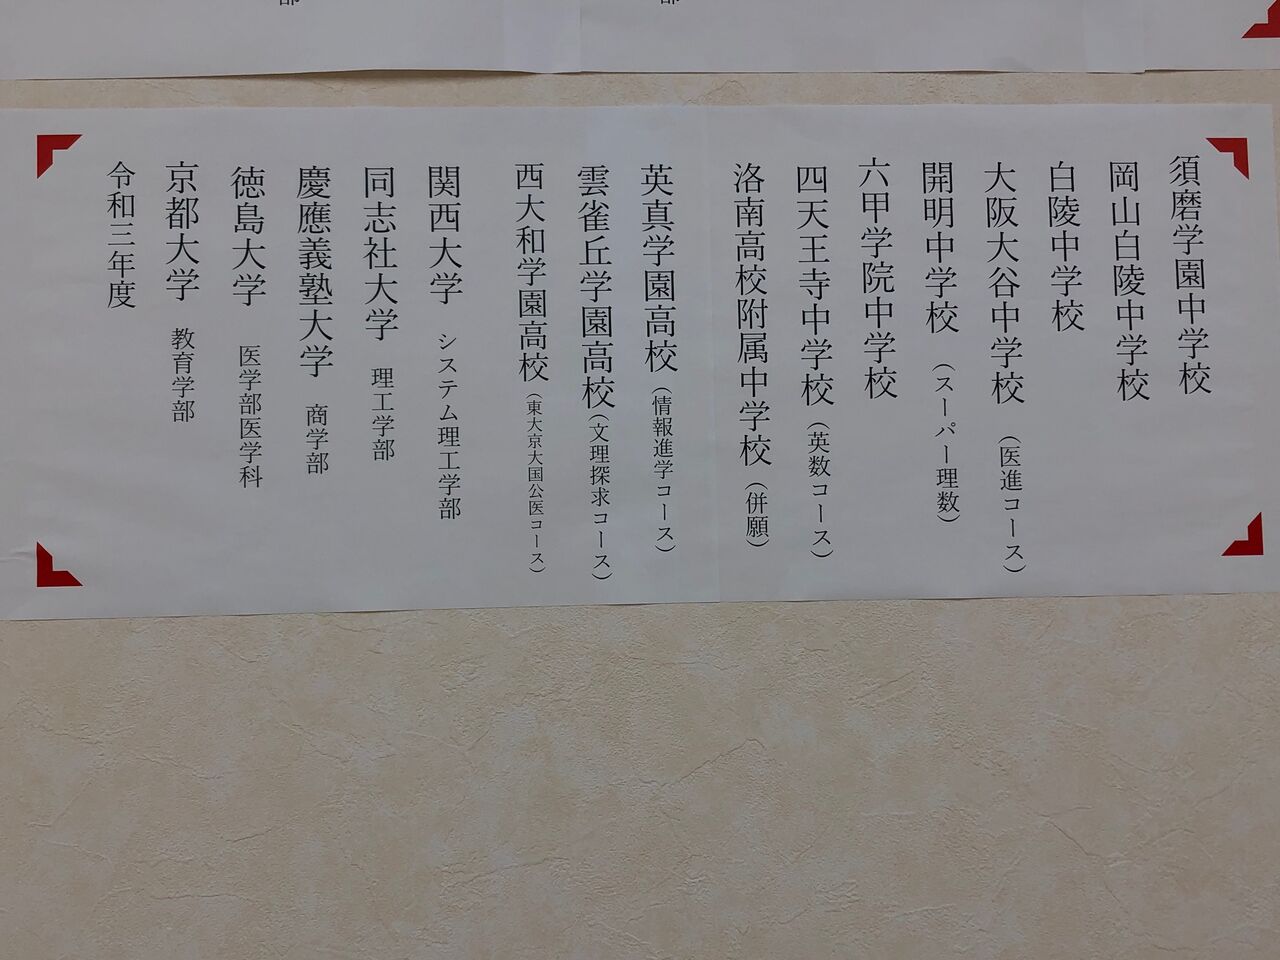 須磨学園中学校
岡山白陵中学校
白陵中学校
大阪大谷中学校（医進コース）
開明中学校（スーパー理数）
六甲学院中学校
四天王寺中学校（英数コース）
洛南高校附属中学校（併願）
英真学園高校（情報進学コース）
雲雀丘学園高校（文理探求コース）
西大和学園高校（東大京大国公医コース）
関西大学 システム理工学部
同志社大学 理工学部
慶應義塾大学 商学部
徳島大学 医学部医学科
京都大学 教育学部
令和三年度